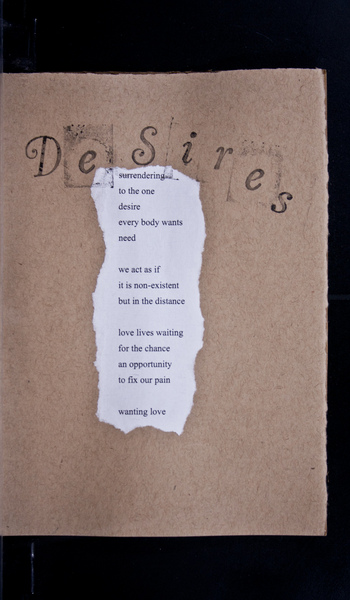 DeSires
surrendering
to the one
desire
every body wants
need
we act as if
it is non-existent
but in the distance
love lives waiting
for the chance
an opportunity
to fix our pain
wanting love